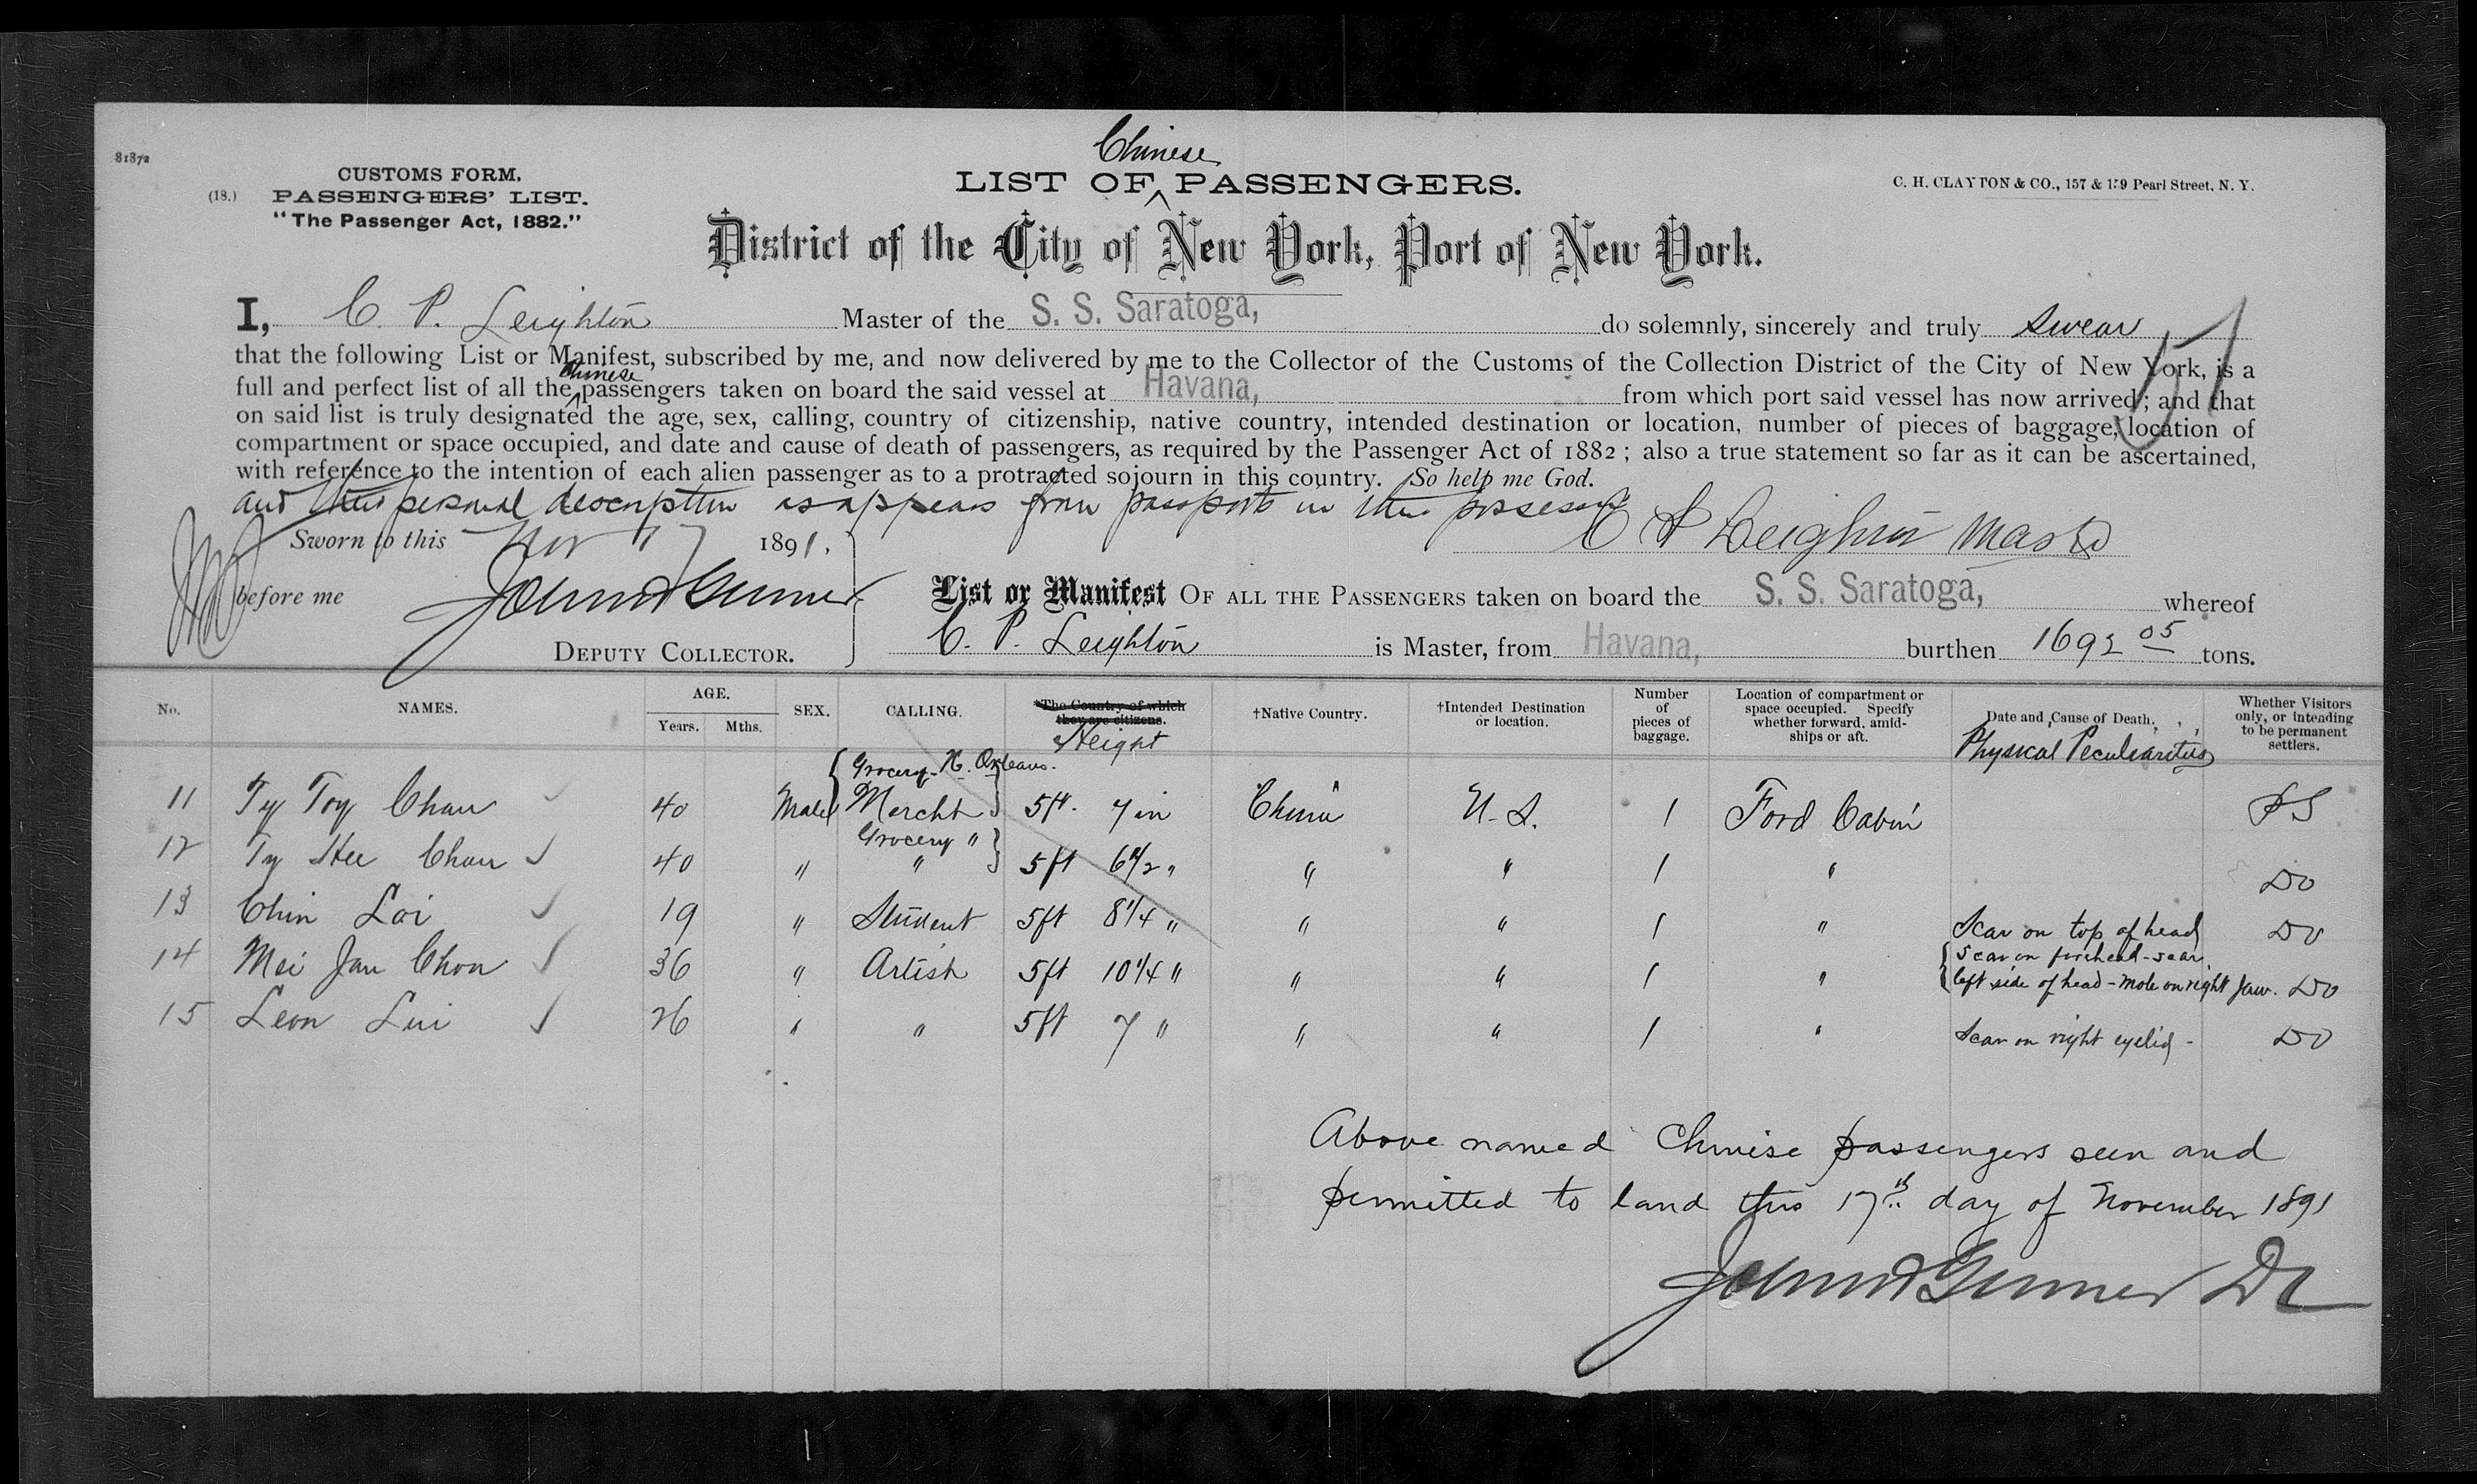 81872
CUSTOMS FORM.
(18.) PASSENGERS' LIST.
"The Passenger Act, 1882."
Chinese
LIST OF ^ PASSENGERS.
C. H. CLAYTON & CO., 157 & 159 Pearl Street, N. Y.
District of the City of New York, Port of New York.
I, C. P. Leighton Master of the S. S. Saratoga, do solemnly, sincerely and truly swear
that the following List or Manifest, subscribed by me, and now delivered by me to the Collector of the Customs of the Collection District of the City of New York, is a
full and perfect list of all the ^ Chinese passengers taken on board the said vessel at Havana, from which port said vessel has now arrived; and that
on said list is truly designated the age, sex, calling, country of citizenship, native country, intended destination or location, number of pieces of baggage, location of
compartment or space occupied, and date and cause of death of passengers, as required by the Passenger Act of 1882; also a true statement so far as it can be ascertained,
with reference to the intention of each alien passenger as to a protracted sojourn in this country. So help me God.
and their personal description as appears from passports in their possession
C P Leighton Master
Sworn to this Nov 17 1891,
before me
DEPUTY COLLECTOR.
List or Manifest OF ALL THE PASSENGERS taken on board the S. S. Saratoga, whereof
C. P. Leighton is Master, from Havana, burthen 1692 05 tons.
No. NAMES. AGE. Years. Mths. SEX. CALLING. †The Country of which they are citizens. Height †Native Country. †Intended Destination or location. Number of pieces of baggage. Location of compartment or space occupied. Specify whether forward, amidships or aft. Date and Cause of Death. Physical Peculiarities Whether Visitors only, or intending to be permanent settlers.
Grocery - N. Orleans.
11 Ty Toy Chan 40 Male Mercht 5ft. 7 in China U. S. 1 Ford Cabin PS
Grocery "
12 Ty Hee Chan 40 " " 5ft 6 1/2 " " " 1 " Do
13 Chin Loi 19 " Student 5ft 8 1/4 " " " 1 " Scar on top of head Do
14 Mei Jan Chon 36 " Artist 5ft 10 1/4 " " " 1 " Scar on forehead - scar left side of head - mole on right jaw. Do
15 Leon Lui 26 " " 5ft 7 " " " 1 " Scar on right eyelid - Do
Above named Chinese passengers seen and
permitted to land this 17th day of November 1891